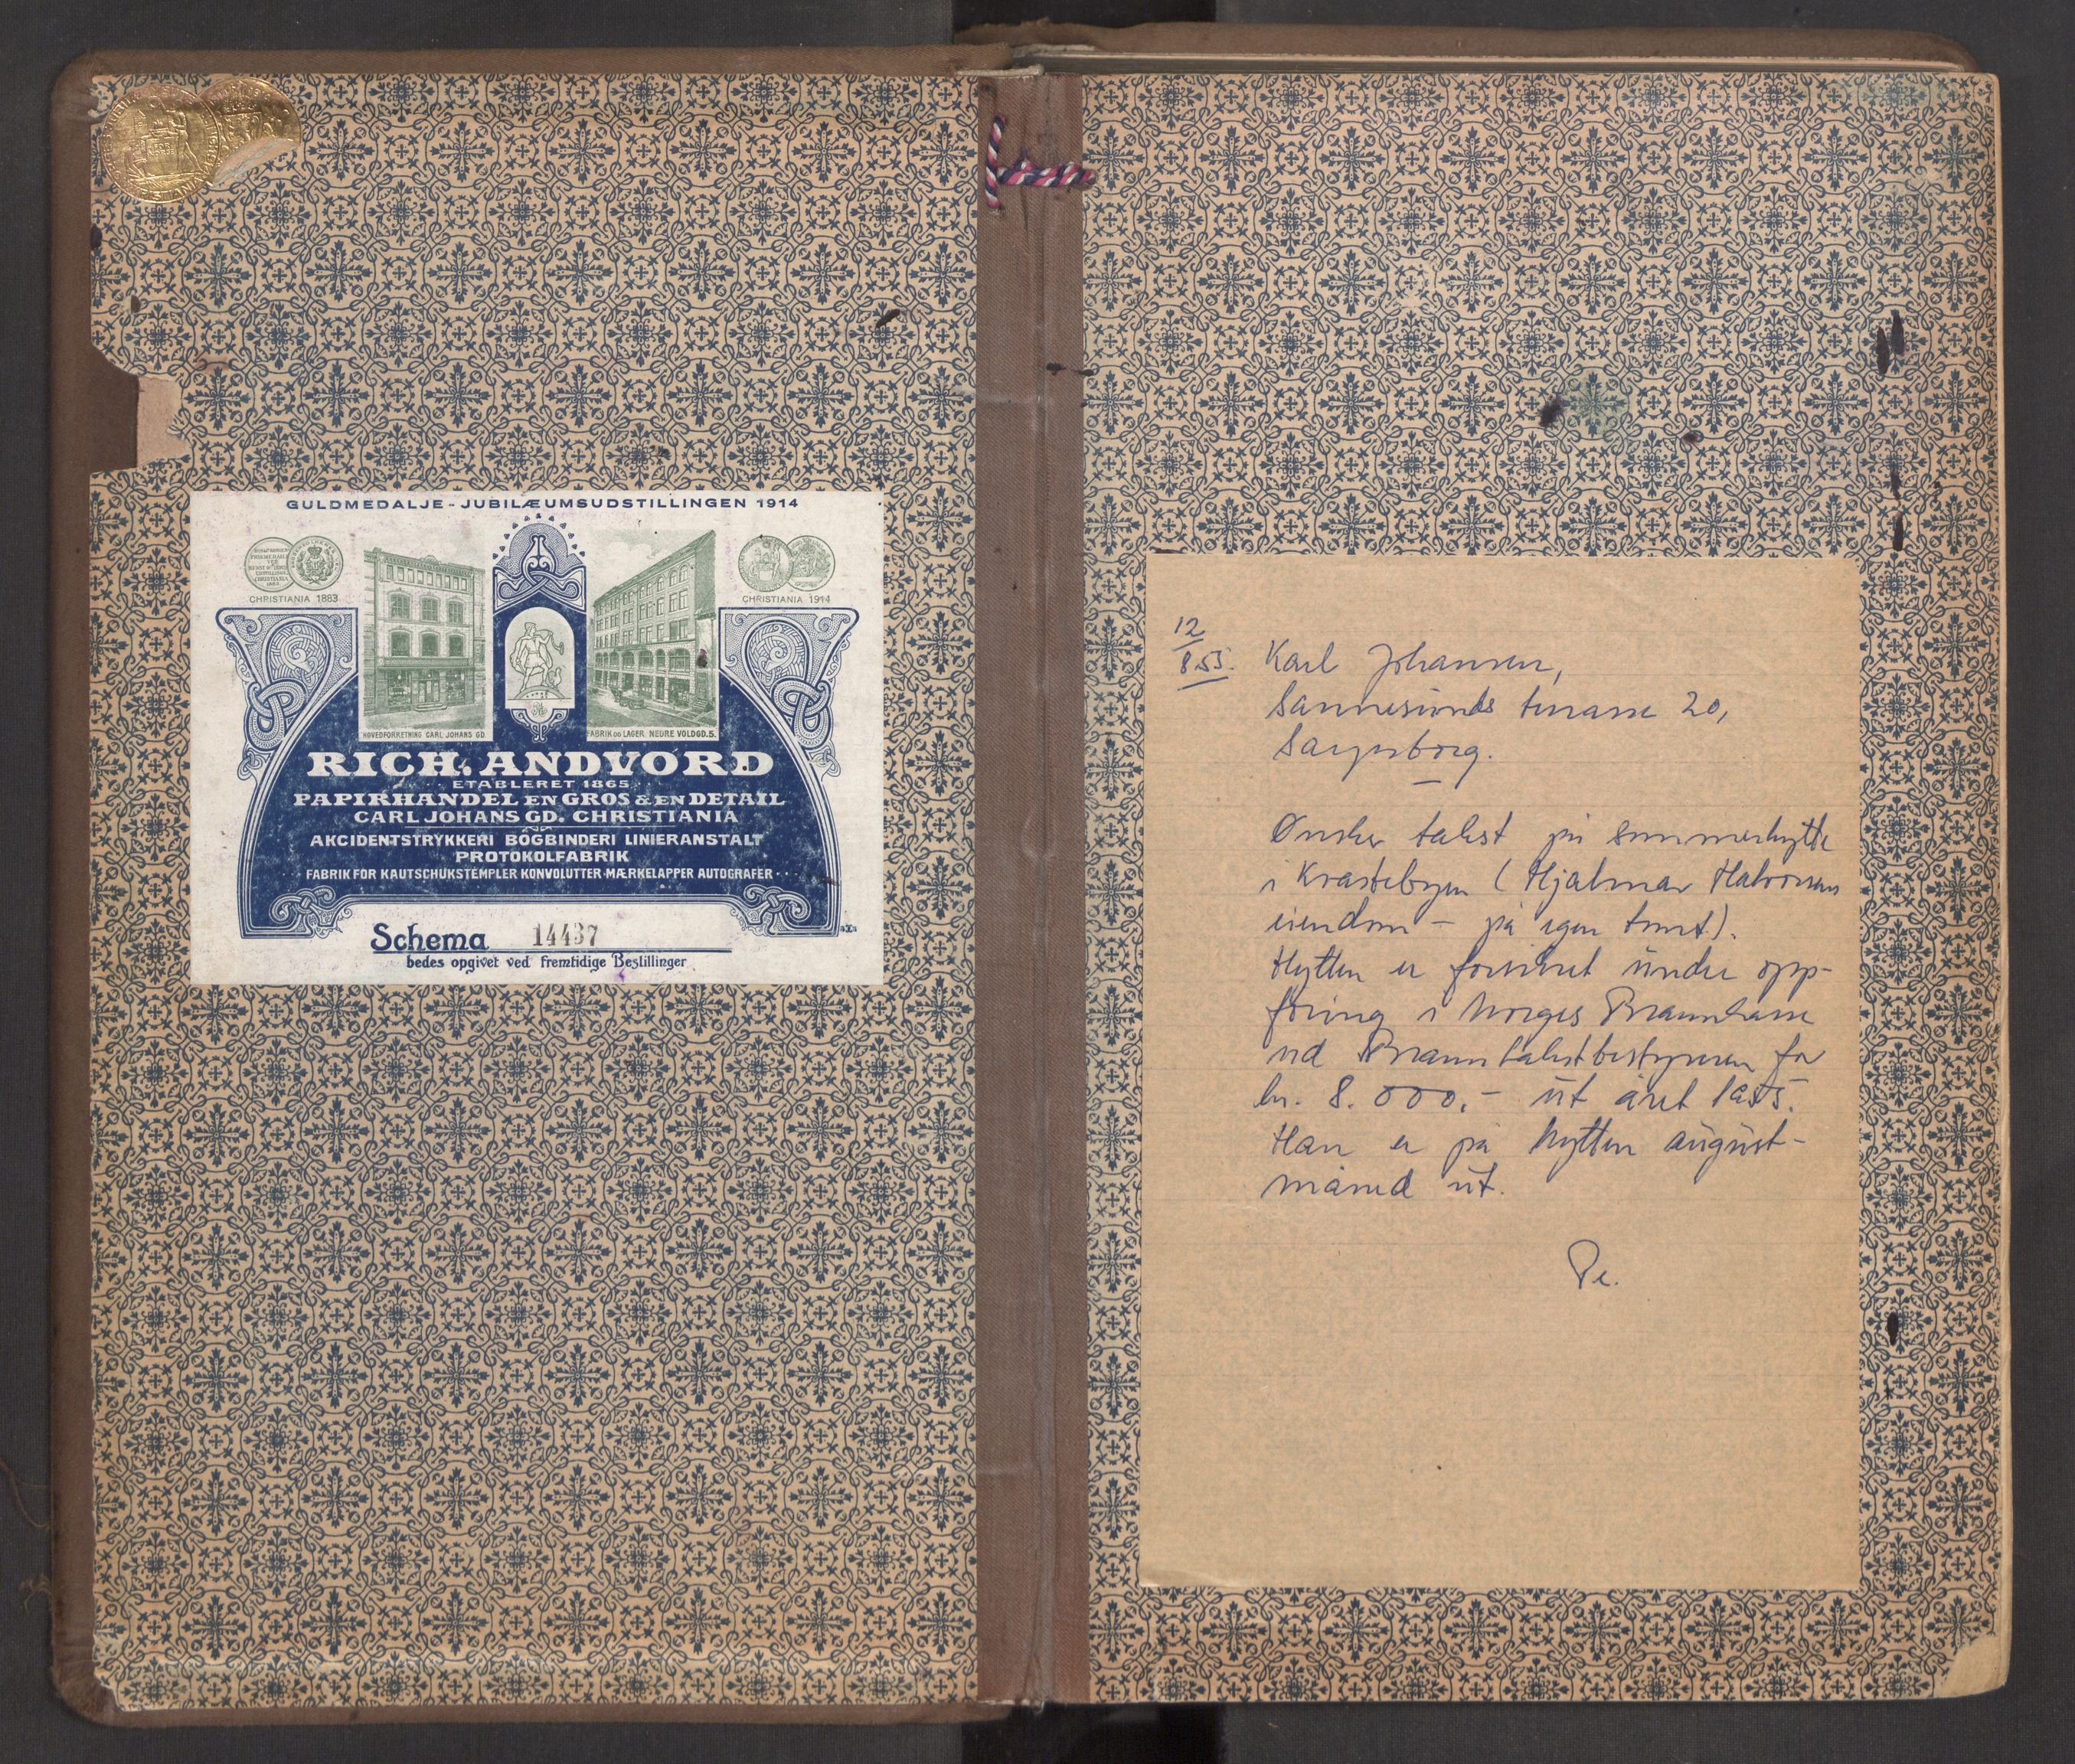 GULDMEDALJE - JUBILÆUMSUDSTILLINGEN 1914
CHRISTIANIA 1883
CHRISTIANIA 1914
HOVEDFORRETNING CARL JOHANS GD.
FABRIK OG LAGER NEDRE VOLDGD.5.
RICH. ANDVORD
ETABLERET 1865
PAPIRHANDEL EN GROS & EN DETAIL
CARL JOHANS GD. CHRISTIANIA
AKCIDENTSTRYKKERI BOGBINDERI LINIERANSTALT
PROTOKOLFABRIK
FABRIK FOR KAUTSCHUKSTEMPLER KONVOLUTTER MÆRKELAPPER AUTOGRAFER
Schema 14437
bedes opgivet ved fremtidige Bestillinger
12/8.55. Karl Johansen,
Sannesunds terrasse 20,
Sarpsborg.
Ønsker takst på sommerhytte
i (Hjalmar Halvorsens
eiendom - på egen tomt).
Hytten er forsikret under opp-
føring i Norges Brannkasse
ved Branntakstbestyreren for
kr. 8.000,- ut året 1955.
Han er på hytten august-
måned ut.